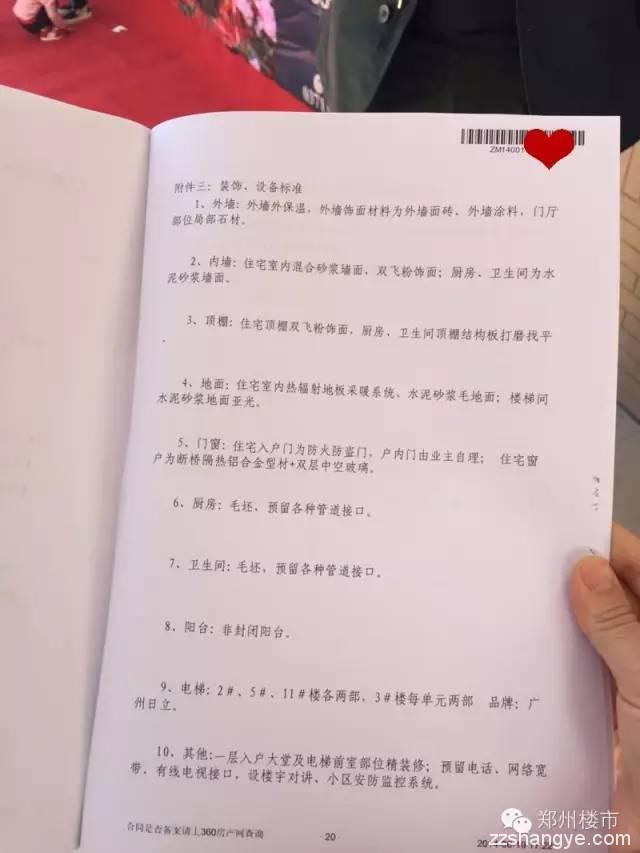 0371
ZM14001
附件三：装饰、设备标准
1、外墙：外墙外保温，外墙饰面材料为外墙面砖、外墙涂料，门厅
部位局部石材。
2、内墙：住宅室内混合砂浆墙面，双飞粉饰面；厨房、卫生间为水
泥砂浆墙面。
3、顶棚：住宅顶棚双飞粉饰面，厨房、卫生间顶棚结构板打磨找平
.
4、地面：住宅室内热辐射地板采暖系统、水泥砂浆毛地面；楼梯间
水泥砂浆地面亚光。
5、门窗：住宅入户门为防火防盗门，户内门由业主自理； 住宅窗
户为断桥隔热铝合金型材+双层中空玻璃。
6、厨房：毛坯、预留各种管道接口。
7、卫生间：毛坯，预留各种管道接口。
8、阳台：非封闭阳台。
9、电梯：2#、5#、11#楼各两部，3#楼每单元两部 品牌：广
州日立。
10、其他:一层入户大堂及电梯前室部位精装修；预留电话、网络宽
带，有线电视接口，设楼宇对讲、小区安防监控系统。
合同是否备案请上360房产网查询
- 20 -
郑州楼市
zzshangye.com